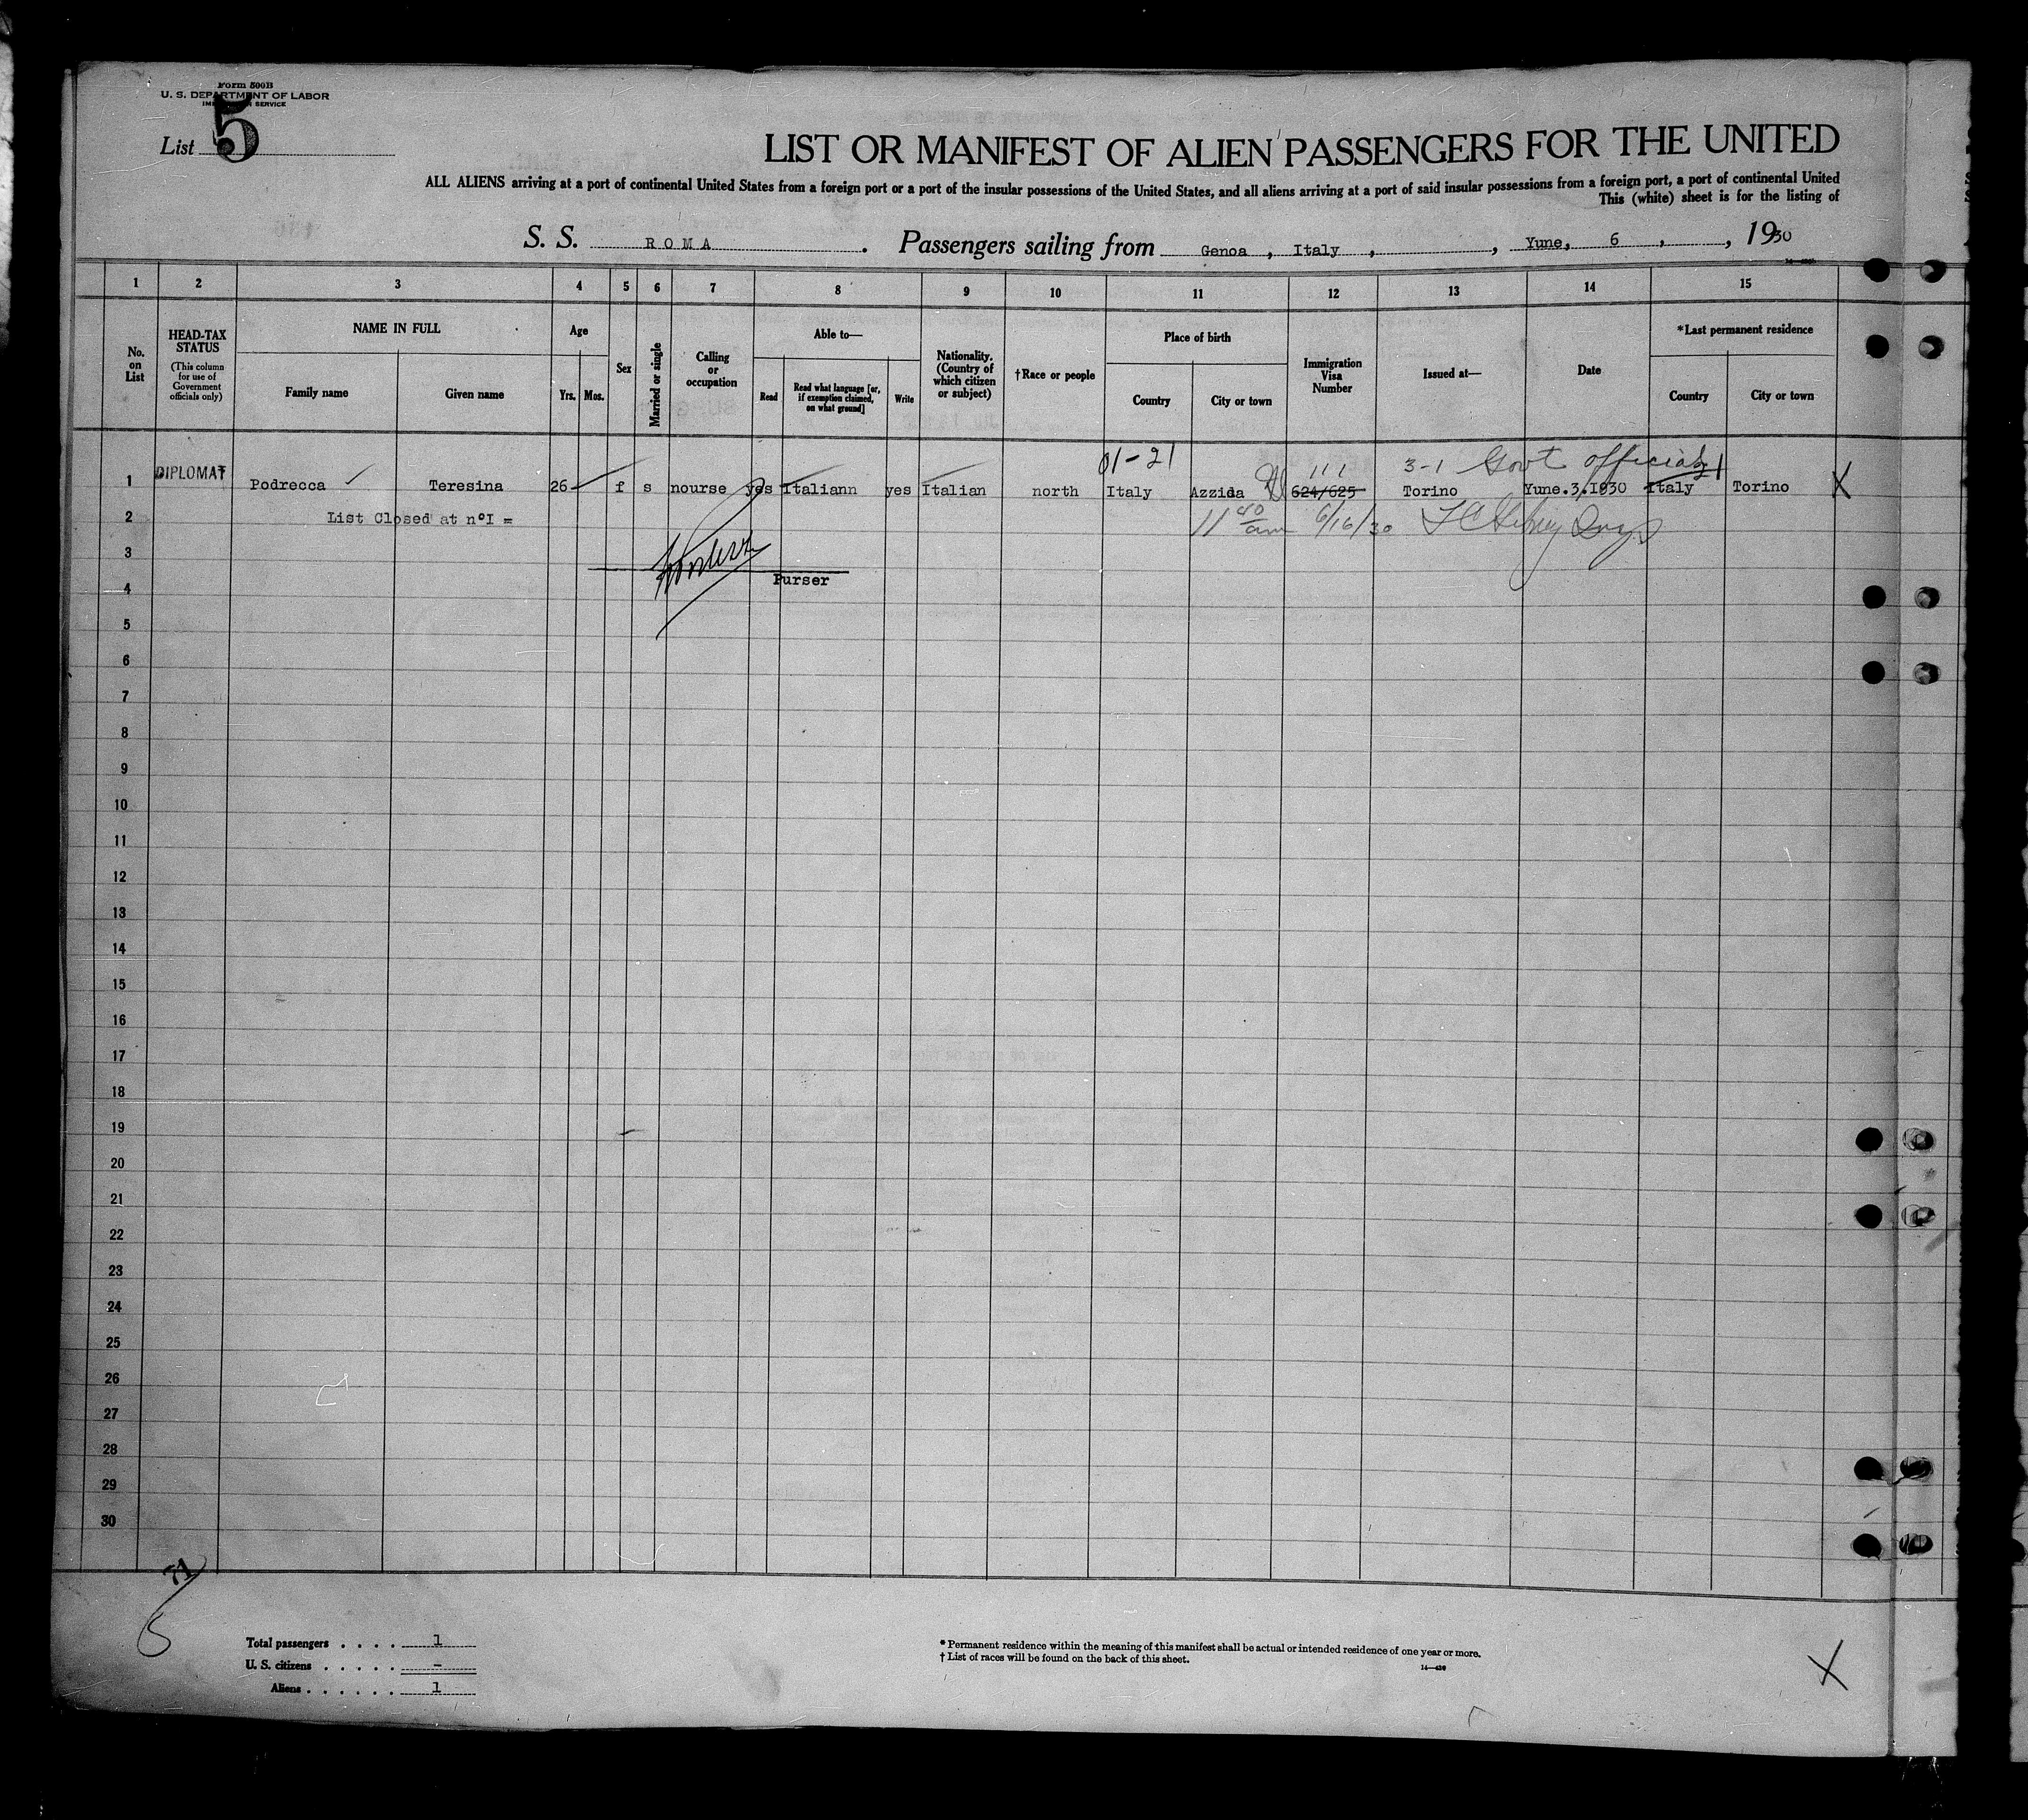 Form 500B
U. S. DEPARTMENT OF LABOR
SERVICE
List 5
LIST OR MANIFEST OF ALIEN PASSENGERS FOR THE UNITED
ALL ALIENS arriving at a port of continental United States from a foreign port or a port of the insular possessions of the United States, and all aliens arriving at a port of said insular possessions from a foreign port, a port of continental United
This (white) sheet is for the listing of
S. S. ROMA. Passengers sailing from Genoa, Italy, , Yune, 6, , 1930
1 2 3 4 5 6 7 8 9 10 11 12 13 14 15
No. on List
HEAD-TAX STATUS (This column for use of Government officials only)
NAME IN FULL
Family name
Given name
Age
Yrs.
Mos.
Sex
Married or single
Calling or occupation
Able to—
Read
Read what language [or, if exemption claimed, on what ground]
Write
Nationality. (Country of which citizen or subject)
†Race or people
Place of birth
Country
City or town
Immigration Visa Number
Issued at—
Date
*Last permanent residence
Country
City or town
01-21 3-1 Govt official
1 DIPLOMAT Podrecca Teresina 26 f s nourse yes Italiann yes Italian north Italy Azzida 624/625 Torino Yune.3.1930 Italy Torino X
2 List Closed at n°I = 11 40 am 6/16/30
3
Purser
4
5
6
7
8
9
10
11
12
13
14
15
16
17
18
19
20
21
22
23
24
25
26
27
28
29
30
Total passengers . . . . 1
U. S. citizens . . . . . –
Aliens . . . . . . 1
* Permanent residence within the meaning of this manifest shall be actual or intended residence of one year or more.
† List of races will be found on the back of this sheet.
X